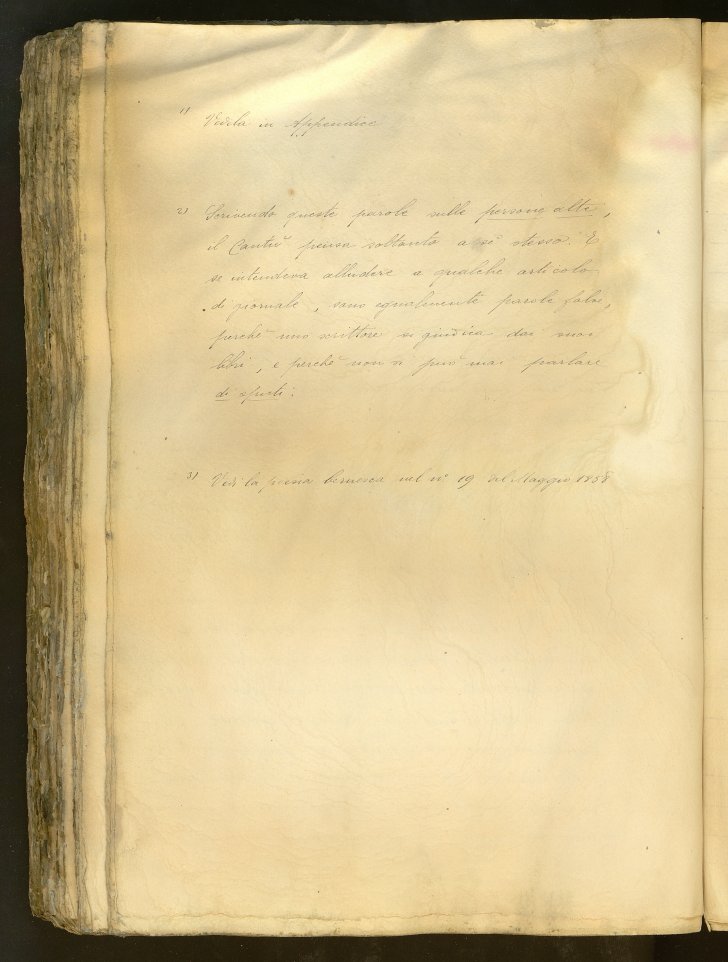 1) Vedila in Appendice
2) Scrivendo queste parole sulle persone alte,
il Cantù pensa soltanto a sè stesso. E
se intendeva alludere a qualche articolo
di giornale, sono egualmente parole false,
perchè uno scrittore si giudica dai suoi
libri, e perchè non si può mai parlare
di
3) Vedi la poesia bernesca nel n.° 19 del Maggio 1858